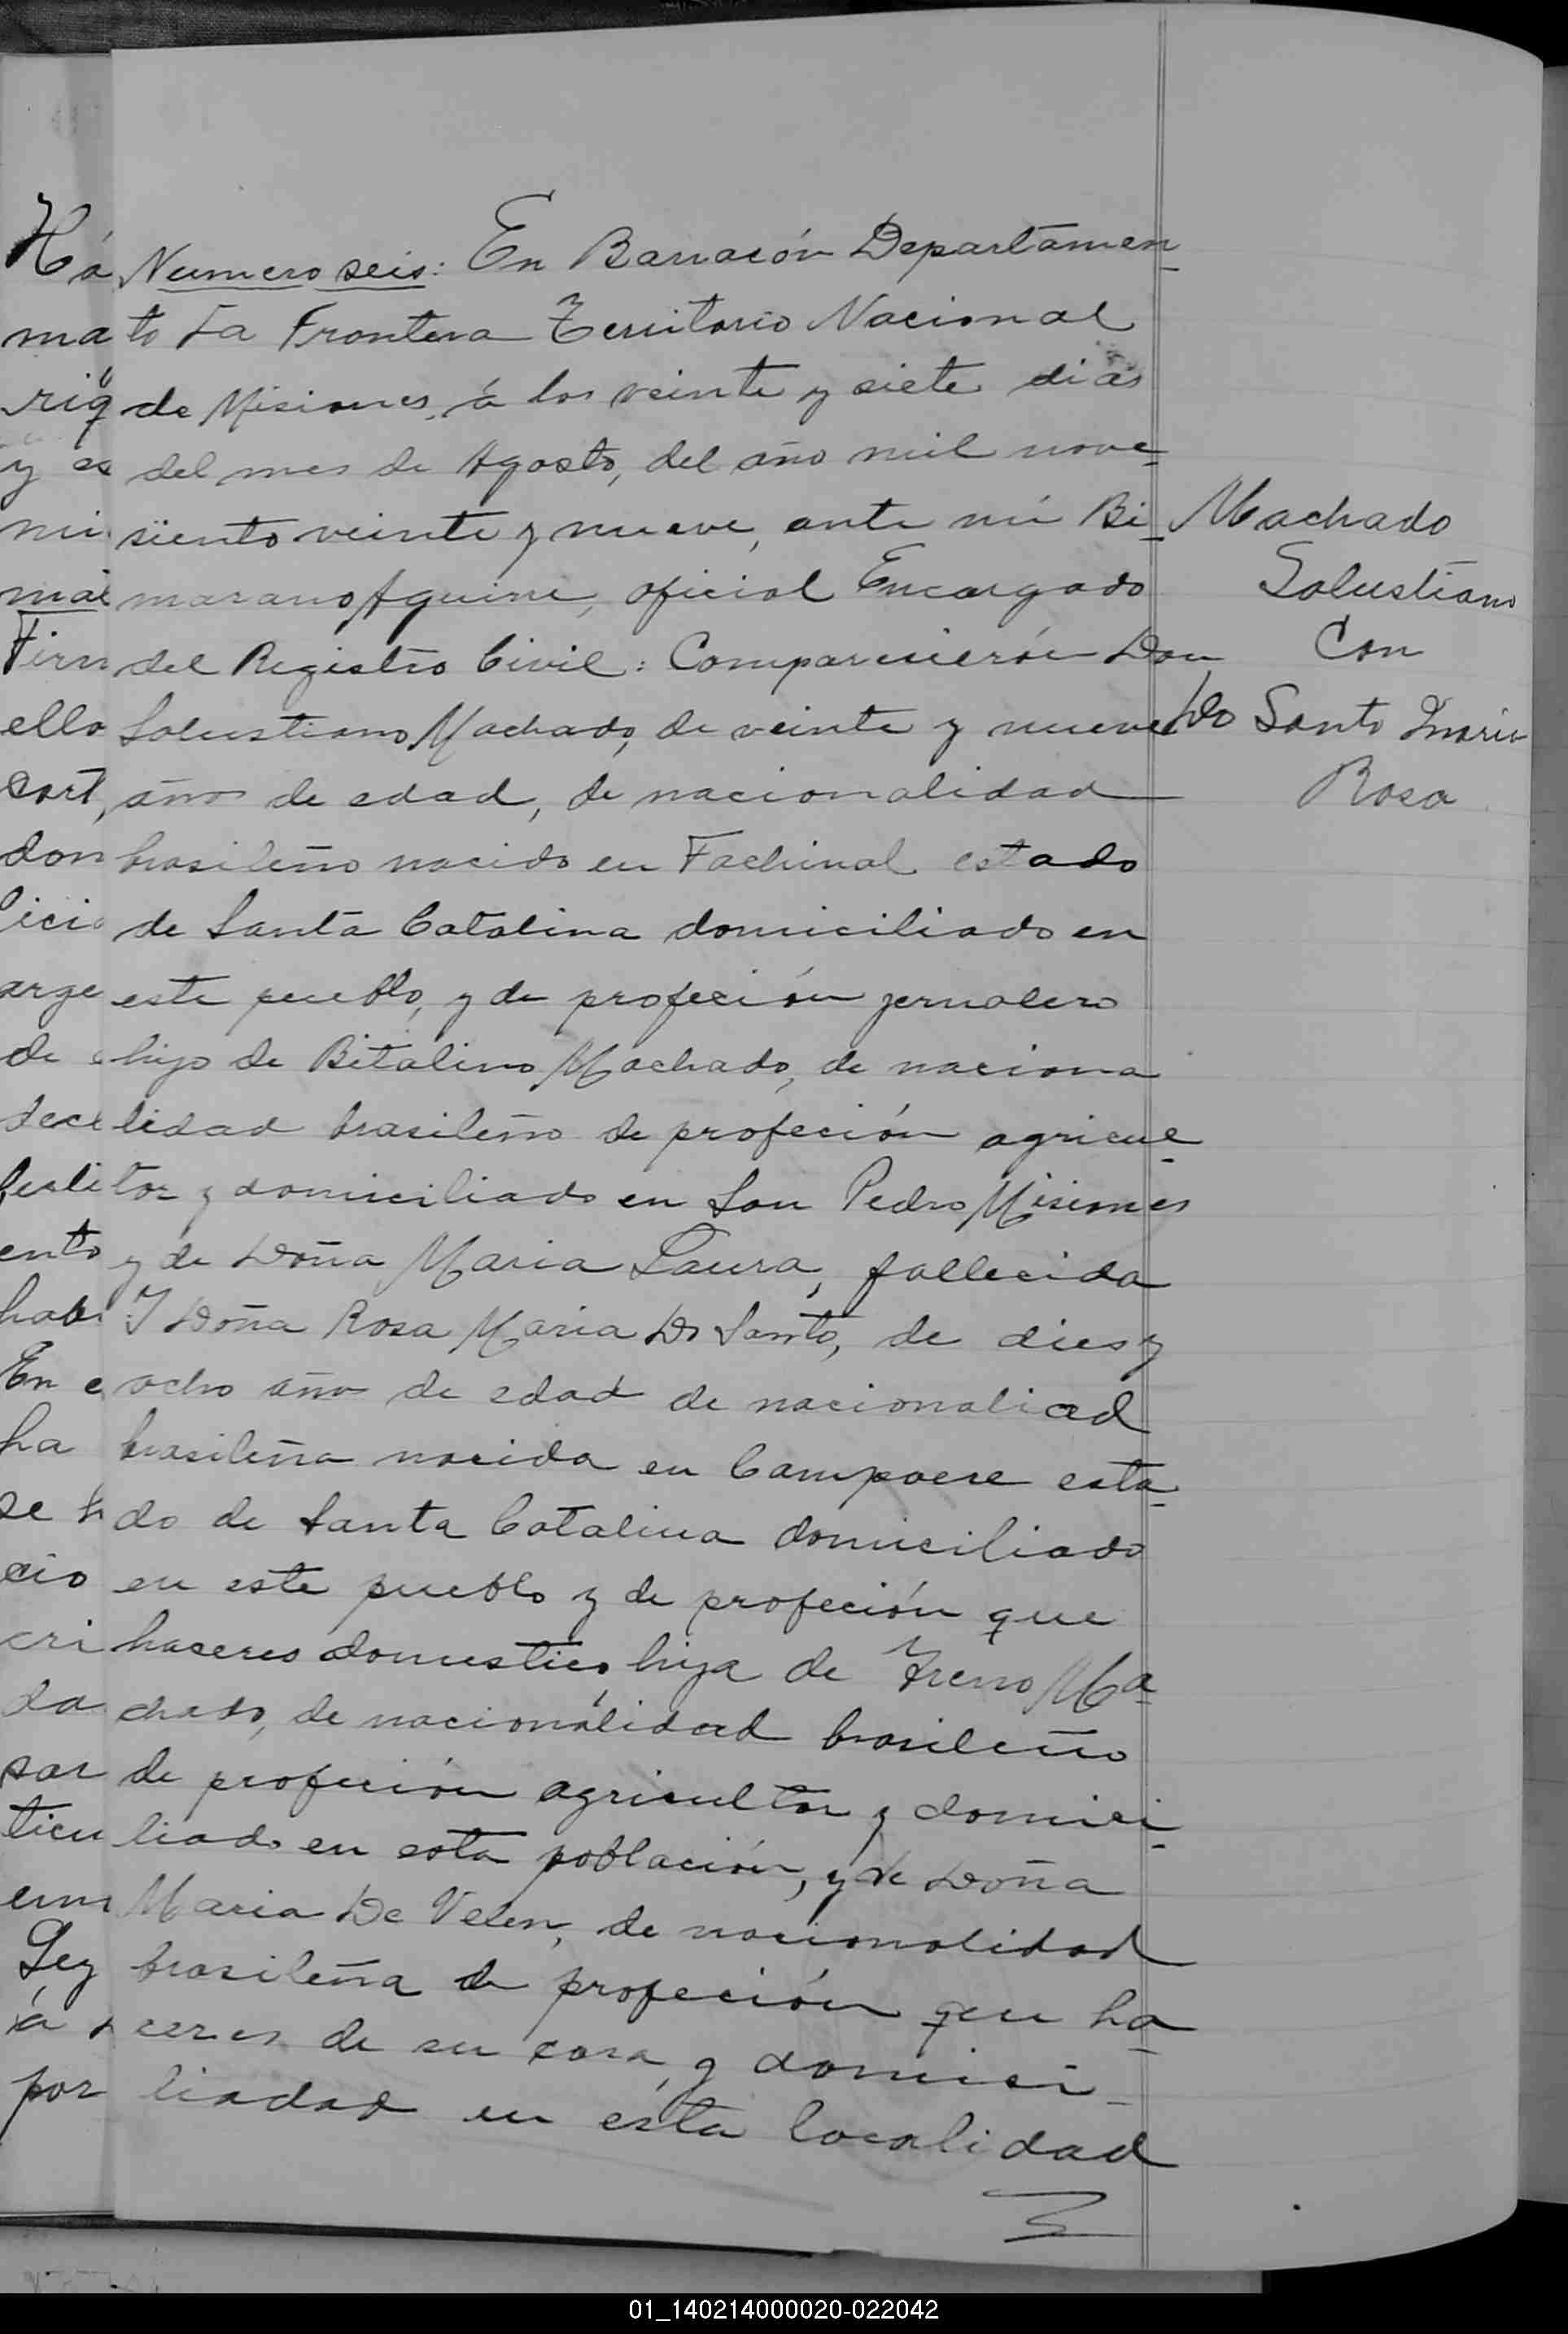 Numero seis: En Barracón Departamen-
to La Frontera Territorio Nacional
de Misiones, á los veinte y siete dias
del mes de Agosto, del año mil nove-
siento veinte y nueve, ante mi Bi-
marano Aguirre, oficial Encargado
del Registro Civil: Comparecierón Don
Solustiano Machado, de veinte y nueve
años de edad, de nacionalidad
brasileño nacido en Fachinal estado
de Santa Catalina domiciliado en
este pueblo, y de profeción jernalero
hijo de Bitalino Machado, de naciona
lidad brasileño de profeción agricul-
tor y domiciliado en San Pedro Misiones
y de Doña Maria Laura, fallecida
Y Doña Rosa Maria Do Santo, de dies y
ocho años de edad de nacionaliad
brasileña nacida en Campoere esta-
do de Santa Catalina domiciliado
en este pueblo y de profeción que
haseres domestico, hija de Ireno Ma-
chado, de nacionálidad brasileño
de profeción agricultor y domici-
liado en esta población, y de Doña
Maria De Velen, de nacionalidad
brasileña de profeción que ha-
ceres de su casa, y domici-
liadad en ésta localidad
Machado
Solustiano
Con
Do Santo Maria
Rosa
Há
ma
riq
y es
mi
mai
Firm
ello
sort,
don
lici
arge
de
dece
festi
ento
hab
En e
ha
se h
cio
cri
da
sar
ticu
Ley
á
por
01_140214000020-022042